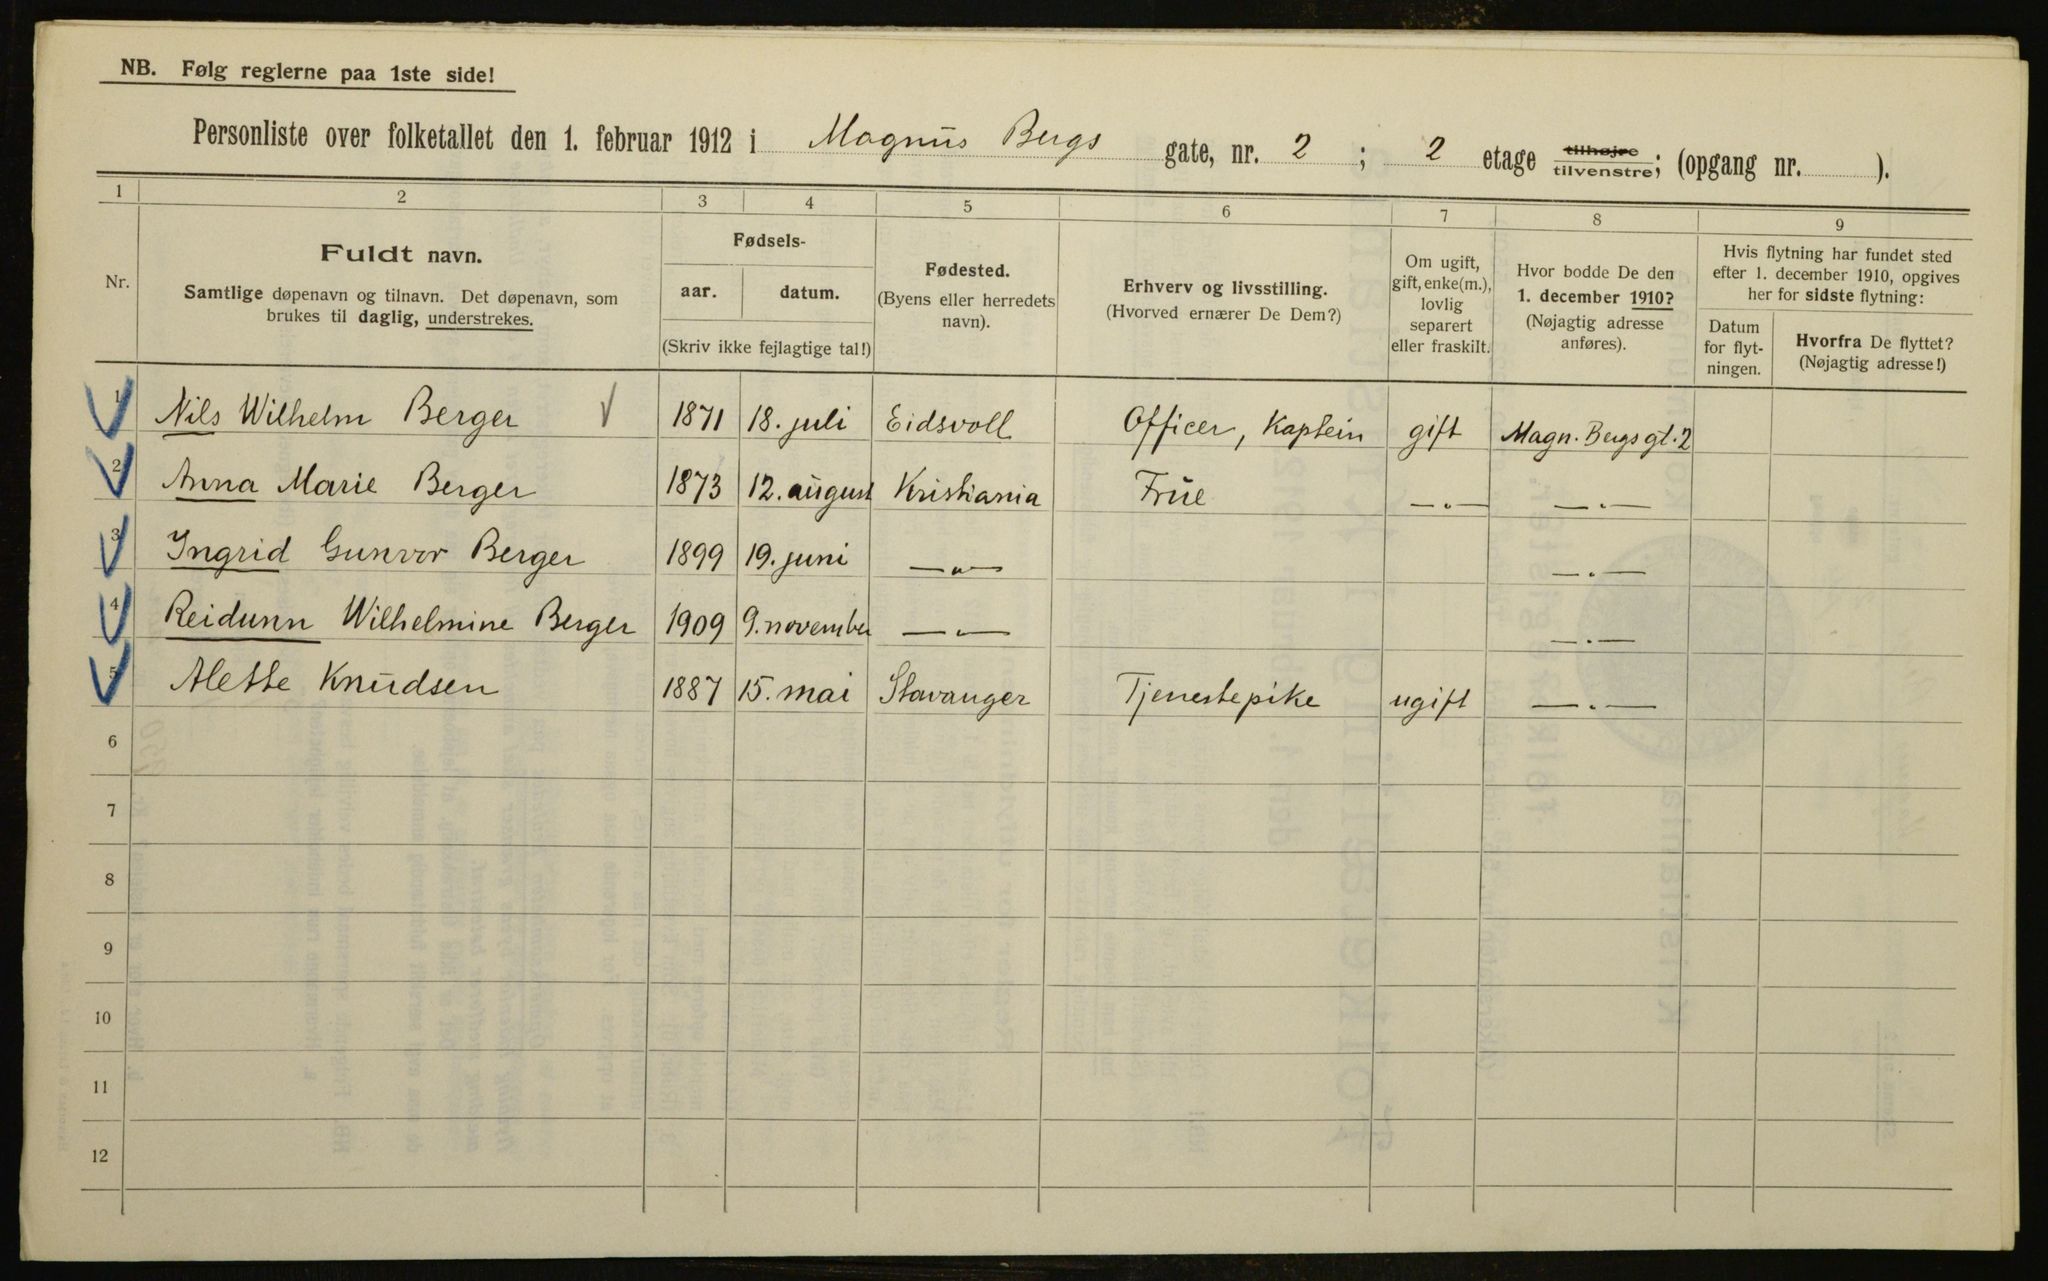 NB. Følg reglerne paa 1ste side!
Personliste over folketallet den 1. februar 1912 i Magnus Bergs gate, nr. 2 ; 2 etage tilhøjre tilvenstre; (opgang nr. ).
1 2 3 4 5 6 7 8 9
Nr.
Fuldt navn.
Samtlige døpenavn og tilnavn. Det døpenavn, som
brukes til daglig, understrekes.
Fødsels-
aar. datum.
(Skriv ikke fejlagtige tal!)
Fødested.
(Byens eller herredets
navn).
Erhverv og livsstilling.
(Hvorved ernærer De Dem?)
Om ugift,
gift, enke(m.),
lovlig
separert
eller fraskilt.
Hvor bodde De den
1. december 1910?
(Nøjagtig adresse
anføres).
Hvis flytning har fundet sted
efter 1. december 1910, opgives
her for sidste flytning:
Datum
for flyt-
ningen.
Hvorfra De flyttet?
(Nøjagtig adresse!)
1 Nils Wilhelm Berger 1871 18. juli Eidsvoll Officer, Kaptein gift Magn. Bergs gt. 2
2 Anna Marie Berger 1873 12. august Kristiania Frue —„— —„—
3 Ingrid Gunvor Berger 1899 19. juni —„— —„—
4 Reidunn Wilhelmine Berger 1909 9. november —„— —„—
5 Alette Knudsen 1887 15. mai Stavanger Tjenestepike ugift —„—
6
7
8
9
10
11
12